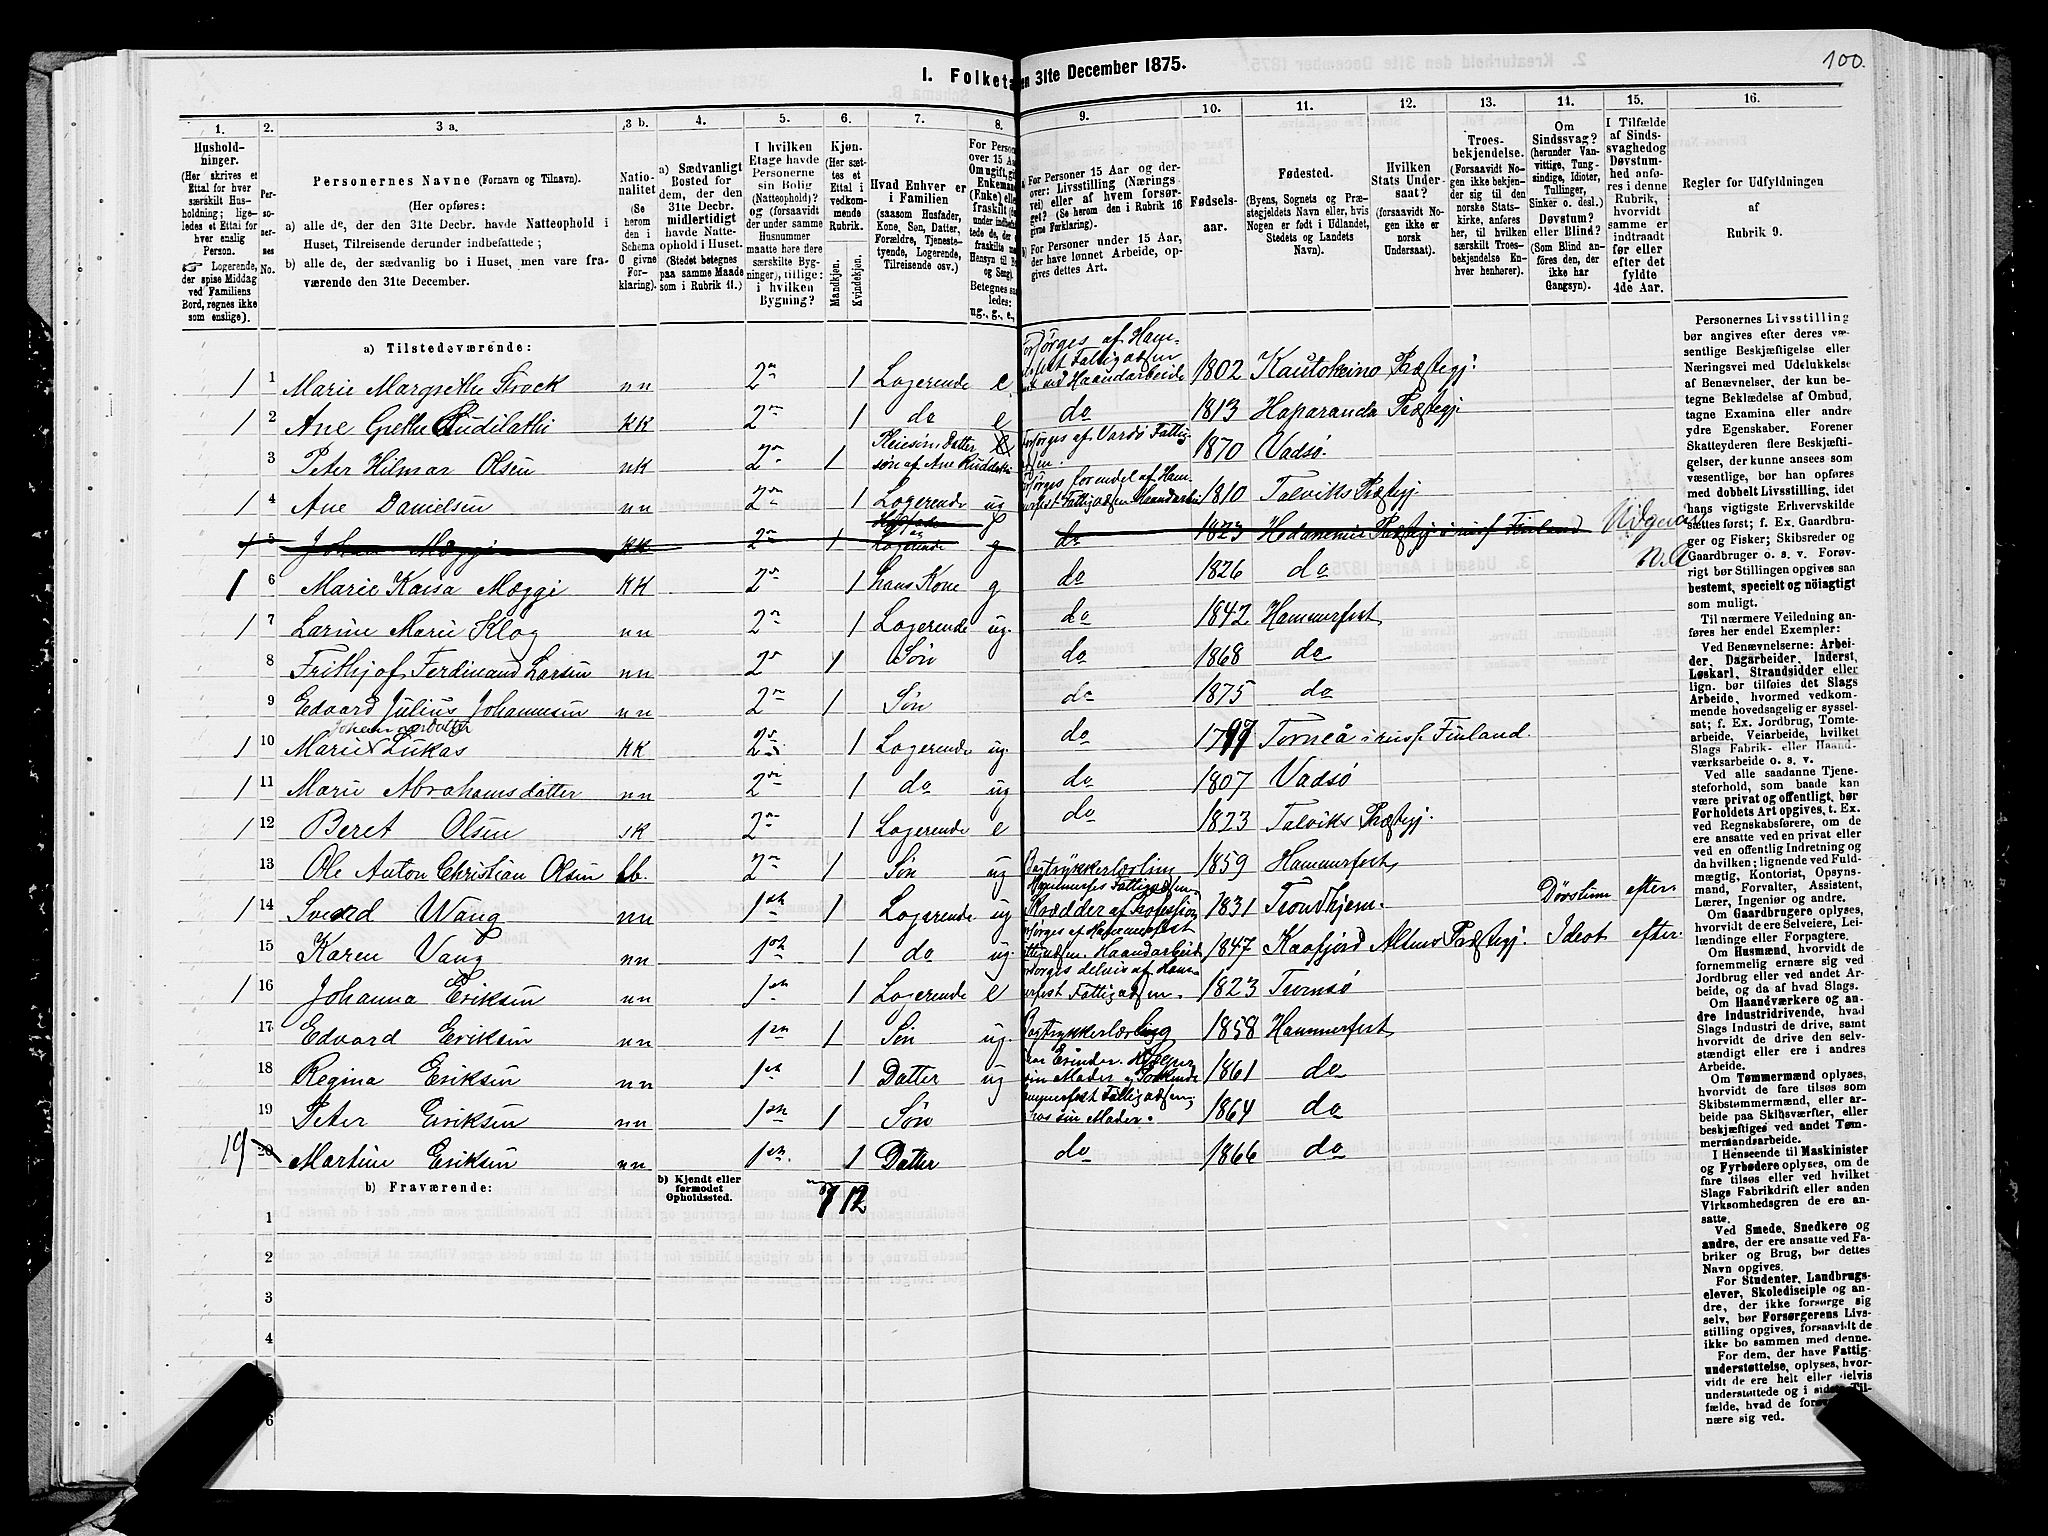 100.
I. Folketa
en 31te December 1875.
1. 2. 3 a. 3 b. 4. 5. 6. 7. 8. 9. 10. 11. 12. 13. 14. 15. 16.
Hushold-
ninger.
(Her skrives et
Ettal for hver
særskilt Hus-
holdning; lige-
ledes et Ettal for
hver enslig
Person.
☞ Logerende,
der spise Middag
ved Familiens
Bord, regnes ikke
som enslige).
Per-
so-
ner-
nes
No.
Personernes Navne (Fornavn og Tilnavn).
(Her opføres:
a) alle de, der den 31te Decbr. havde Natteophold i
Huset, Tilreisende derunder indbefattede;
b) alle de, der sædvanlig bo i Huset, men vare fra-
værende den 31te December.
Natio-
nalitet
(Se
herom
den i
Schema
C givne
For-
klaring).
a) Sædvanligt
Bosted for
dem, der den
31te Decbr.
midlertidigt
havde Natte-
ophold i Huset.
(Stedet betegnes
paa samme Maade
som i Rubrik 11.)
I hvilken
Etage havde
Personerne
sin Bolig
(Natteophold)?
og (forsaavidt
der under samme
Husnummer
maatte høre flere
særskilte Byg-
ninger), tillige:
i hvilken
Bygning?
Kjøn.
(Her sæt-
tes et
Ettal i
vedkom-
mende
Rubrik.
Mandkjøn.
Kvindekjøn.
Hvad Enhver er
i Familien
(saasom Husfader,
Kone, Søn, Datter,
Forældre, Tjeneste-
tyende, Logerende,
Tilreisende osv.)
For Person
over 15 Aa
Om ugift, gi
Enkeman
(Enke) elle
fraskilt (
under indb
tede de, der
fraskilte m
Hensyn til B
og Seng).
Betegnes sa
ledes:
ug., g., e.,
a) For Personer 15 Aar og der-
over: Livsstilling (Nærings
vei) eller af hvem forsør-
get? (Se herom den i Rubrik 16
givne Forklaring).
b) For Personer under 15 Aar,
der have lønnet Arbeide, op-
gives dettes Art.
Fødsels-
aar.
Fødested.
(Byens, Sognets og Præ-
stegjeldets Navn eller, hvis
Nogen er født i Udlandet,
Stedets og Landets
Navn).
Hvilken
Stats Under-
saat?
(forsaavidt No-
gen ikke er
norsk
Undersaat).
Troes-
bekjendelse.
(Forsaavidt No-
gen ikke bekjen-
der sig til den
norske Stats-
kirke, anføres
her, til hvilken
særskilt Troes-
bekjendelse En-
hver henhører).
Om
Sindssvag?
(herunder Van-
vittige, Tung-
sindige, Idioter,
Tullinger,
Sinker o. desl.)
Døvstum?
eller Blind?
(Som Blind an-
føres den, der
ikke har
Gangsyn).
I Tilfælde
af Sinds-
svaghed og
Døvstum-
hed anfø-
res i denne
Rubrik,
hvorvidt
samme er
indtraadt
før eller
efter det
fyldte
4de Aar.
Regler for Udfyldningen
af
Rubrik 9.
a) Tilstedeværende:
1 1 Marie Margrethe Brock nn 2 1 Logerende e forsørges af Ham- fest Fattigvæsen ved Haandarbeide 1802 Kautokeino Præstegj:
1 2 Ane Grethe KK 2 1 do e do 1813 Haparanda Præstegj.
3 Peter Hilmar Olsen nK 2 1 søn af Ane af Vardø Fattig 1870 Vadsø.
1 4 Ane Danielsen nn 2 1 Logerende ug af Ham- fest Fattigvæsen Haandarbei 1810 Talviks Præstegj.
1 5 Johan Mæggi KK 2 1 Logerende g do 1823 Præstegj i russ Finland
1 6 Marie Kaisa Mæggi KK 2 1 hans Kone g do 1826 do
1 7 Larine Marie Klog nn 2 1 Logerende ug. do 1842 Hammerfest
8 Frithjof Ferdinand Larsen nn 2 1 Søn do 1868 do
9 Edvard Julius Johannesen nn 2 1 Søn do 1875 do
1 10 Marie Lukas KK 2 1 Logerende ug. do Torneå i russ Finland.
1 11 Marie Abrahamsdatter nn 2 1 do ug do 1807 Vadsø
1 12 Beret Olsen sK 2 1 Logerende e do 1823 Talviks Præstegj.
13 Ole Anton Christian Olsen bb. 2 1 Søn ug Bogtrykkerlærling 1859 Hammerfest
1 14 Wang nn 1 1 Logerende ug Skrædder af Profession 1831 Trondhjem. Døvstum efter
15 Karen Vang nn 1 1 do ug. Haandarbeide 1847 Kaafjord Altens Præstegj. Ideot efter.
1 16 Johanna Eriksen nn 1 1 Logerende e forsørges delvis af Ham- merfest Fattigvæsen. 1823 Tromsø
17 Edvard Eriksen nn 1 1 Søn ug. Bogtrykkerlærling 1858 Hammerfest
18 Regina Eriksen nn 1 1 Datter ug sin Moder 1861 do
19 Peter Eriksen nn 1 1 Søn Fattigvæsen, hos sin Moder. 1864 do
19 20 Martine Eriksen nn 1 1 Datter do 1866 do
b) Fraværende:
b) Kjendt eller
formodet
Opholdssted.
7 12
1
2
3
4
5
6
Personernes Livsstilling
bør angives efter deres væ-
sentlige Beskjæftigelse eller
Næringsvei med Udelukkelse
af Benævnelser, der kun be-
tegne Beklædelse af Ombud,
tagne Examina eller andre
ydre Egenskaber. Forener
Skatteyderen flere Beskjæfti-
gelser, der kunne ansees som
væsentlige, bør han opføres
med dobbelt Livsstilling, idet
hans vigtigste Erhvervskilde
sættes først; f. Ex. Gaardbru-
ger og Fisker; Skibsreder og
Gaardbruger o. s. v. Forøv-
rigt bør Stillingen opgives saa
bestemt, specielt og nöiagtigt
som muligt.
Til nærmere Veiledning an-
føres her endel Exempler:
Ved Benævnelserne: Arbei-
der, Dagarbeider, Inderst,
Løskarl, Strandsidder eller
lign. bør tilføies det Slags
Arbeide, hvormed vedkom-
mende hovedsagelig er syssel-
sat; f. Ex. Jordbrug, Tomte-
arbeide, Veiarbeide, hvilket
Slags Fabrik- eller Haand-
værksarbeide o. s. v.
Ved alle saadanne Tjene-
steforhold, som baade kan
være privat og offentligt, bør
Forholdets Art opgives, t. Ex.
ved Regnskabsførere, om de
ere ansatte ved en privat eller
ved en offentlig Indretning og
da hvilken; lignende ved Fuld-
mægtig, Kontorist, Opsyns-
mand, Forvalter, Assistent,
Lærer, Ingeniør og andre.
Om Gaardbrugere oplyses,
hvorvidt de ere Selveiere, Lei-
lændinge eller Forpagtere.
Om Husmænd, hvorvidt de
fornemmelig ernære sig ved
Jordbrug eller ved andet Ar-
beide, og da af hvad Slags.
Om Haandværkere og an-
dre Industridrivende, hvad
Slags Industri de drive, samt
hvorvidt de drive den selv-
stændigt eller ere i andres
Arbeide.
Om Tømmermænd oplyses,
hvorvidt de fare tilsøs som
Skibstømmermænd, eller ar-
beide paa Skibsværfter, eller
beskjæftiges ved andet Tøm-
mermandsarbeide.
I Henseende til Maskinister
og Fyrbødere oplyses, om de
fare tilsøs eller ved hvilket
Slags Fabrikdrift eller anden
Virksomhedsgren de ere an-
satte.
Ved Smede, Snedkere og
andre, der ere ansatte ved Fa-
briker og Brug, bør dettes
Navn opgives.
For Studenter, Landbrugs-
elever, Skoledisciple og an-
dre, der ikke forsørge sig
selv, bør Forsørgerens Livs-
stilling opgives, forsaavidt de
ikke bo sammen med denne.
For dem, der have Fattig-
understøttelse, oplyses, hvor-
vidt de ere helt eller delvis
understøttede og i sidste Til-
fælde, hvad de forøv
nære sig ved.